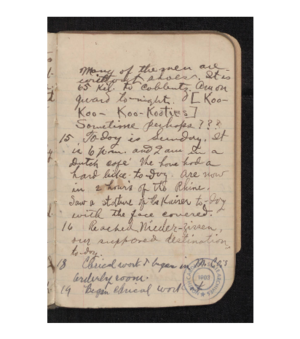 Many of the men are
without shoes. It is
65 Kil. to Coblentz. Am on
guard to-night. [Koo-
Koo- Koo-Kootjes]
Sometime perhaps???
15 To-day is Sunday. It
is 6 p.m. and I am in a
Dutch cafe. We have had a
hard hike to-day. Are now
in 2 hours of the Rhine.
Saw a statue of the Kaiser to-day
with the face covered.
16 Reached Nieder-zissen,
our supposed destination,
to-day.
18 Clerical work began in M.C.
orderly room.
19 Began clerical work